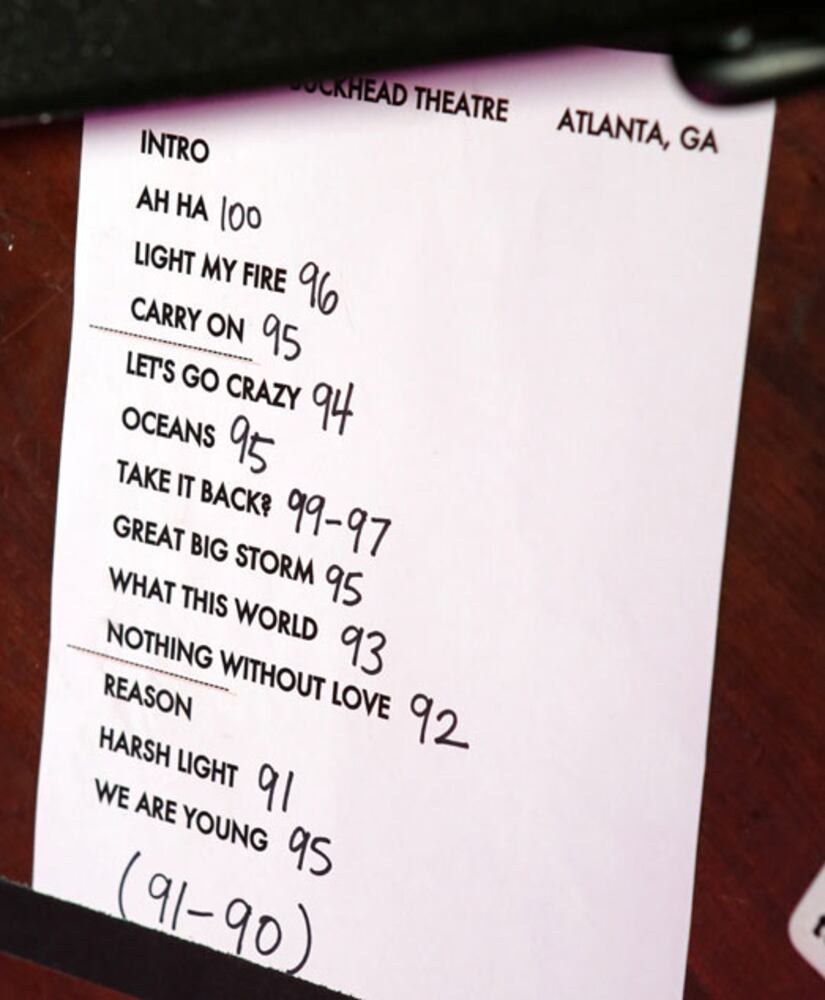 BUCKHEAD THEATRE ATLANTA, GA
INTRO
AH HA 100
LIGHT MY FIRE 96
CARRY ON 95
LET'S GO CRAZY 94
OCEANS 95
TAKE IT BACK? 99-97
GREAT BIG STORM 95
WHAT THIS WORLD 93
NOTHING WITHOUT LOVE 92
REASON
HARSH LIGHT 91
WE ARE YOUNG 95
(91-90)